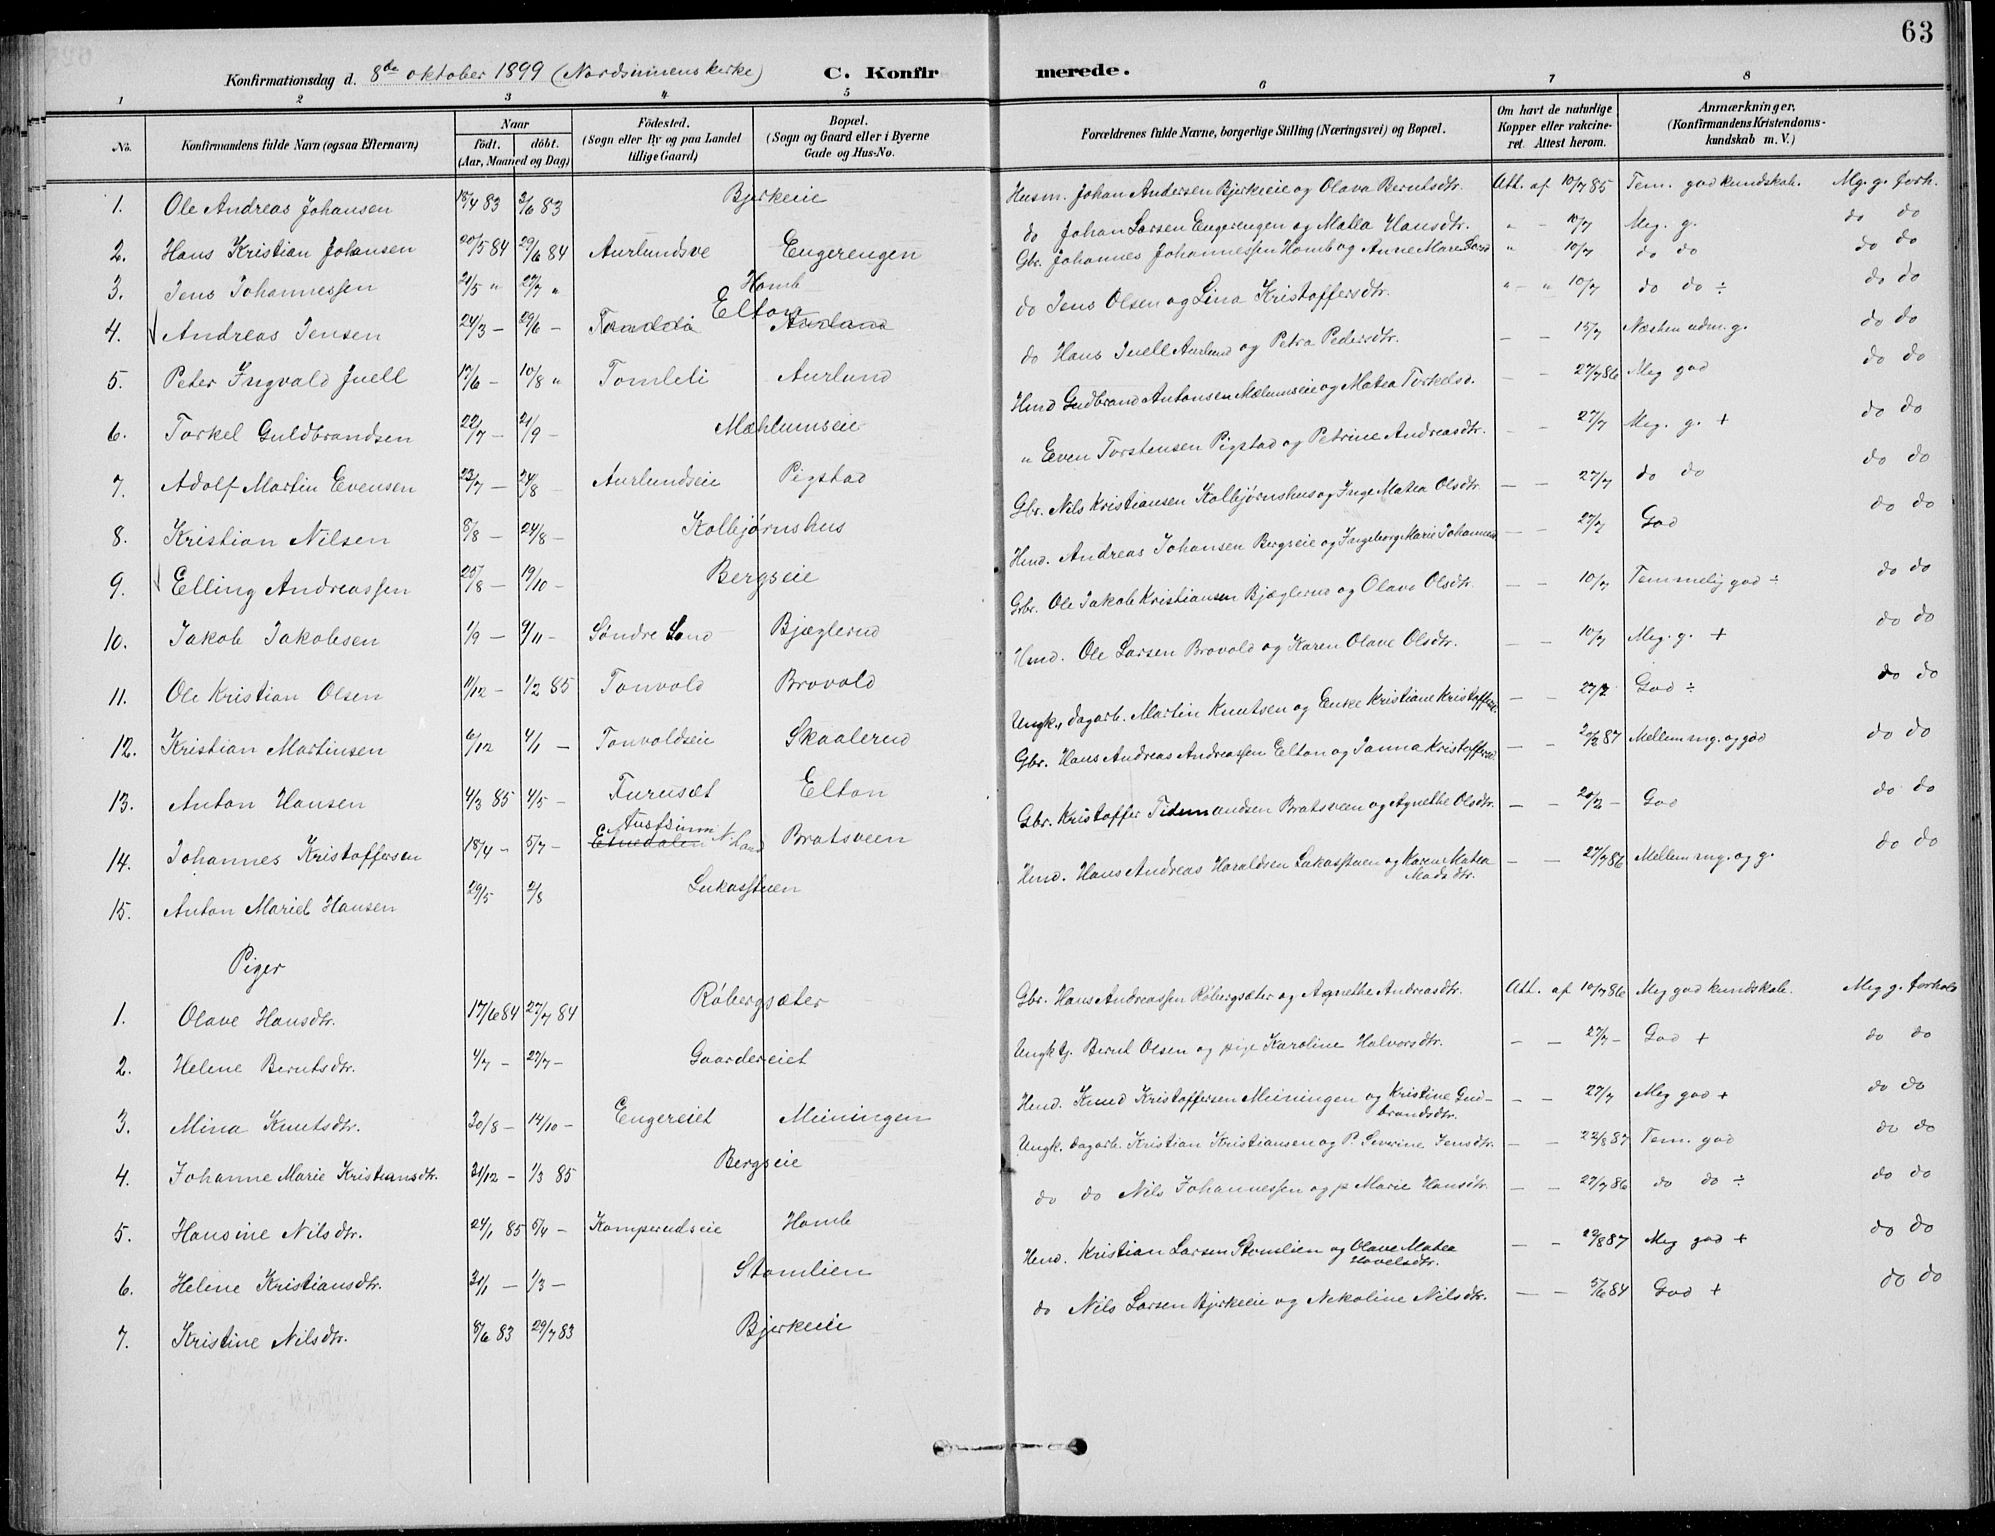 63
Konfirmationsdag d. 8de oktober 1899 (Nordsinnens kirke) C. Konfirmerede.
1 2 3 4 5 6 7 8
No. Konfirmandens fulde Navn (ogsaa Efternavn) Naar født. døbt. (Aar, Maaned og Dag) Fødested. (Sogn eller By og paa Landet tillige Gaard) Bopæl. (Sogn og Gaard eller i Byerne Gade og Hus-No. Forældrenes fulde Navne, borgerlige Stilling (Næringsvei) og Bopæl. Om havt de naturlige Kopper eller vakcineret. Attest herom. Anmærkninger. (Konfirmandens Kristendomskundskab m. V.)
1. Ole Andreas Johansen 15/4 83 3/6 83 Bjerkeie Husm. Johan Andersen Bjerkeie og Olava Berntsdtr. Att. af 10/7 85 Tem. god kundskab. Mg. g. forh.
2. Hans Kristian Johansen 20/5 84 29/6 84 Aurlundsve Engerengen do Johan Larsen Engerengen og Mattea Hansdtr. " - 10/7 Meg. g. do do
3. Jens Johannessen 21/5 " 27/7 " Homb Gbr. Johannes Johannessen Homb og Anne Marie Larsd " 10/7 do do do do
4. Andreas Jensen 24/3 - 29/6 - Elton Aurland do Jens Olsen og Lina Kristoffersdtr. " - " 10/7 do do ÷ do do
5. Peter Ingvald Juell 17/6 - 10/8 " Tomleti Aurlund do Hans Juell Aurlund og Petra Pedersdtr. - - 15/7 Næsten udm. g. do do
6. Torkel Guldbrandsen 22/7 - 21/9 - Mæhlumseie Hmd Gudbrand Antonsen Mælumseie og Matea Torkelsd. - - 27/7 86 Meg god do do
7. Adolf Martin Evensen 23/7 - 24/8 - Aurlundseie Pigstad " Even Torstensen Pigstad og Petrine Andreasdtr. - - 27/7 Meg. g. + do do
8. Kristian Nilsen 8/8 - 24/8 - Kolbjørnshus Gbr. Nils Kristiansen Kolbjørnshus og Inge Matea Olsdtr. - - 27/7 do do do do
9. Elling Andreassen 25/8 - 19/10 - Bergseie Hmd. Andreas Johansen Bergseie og Ingeborg Marie Johannesd - - 27/7 God do do
10. Jakob Jakobsen 1/9 - 9/11 - Søndre Land Bjæglerud Gbr. Ole Jakob Kristiansen Bjæglerud og Olava Olsdtr. - - 10/7 Temmelig god ÷ do do
11. Ole Kristian Olsen 11/12 - 1/2 85 Tonvold Brovold Hmd. Ole Larsen Brovold og Karen Olave Olsdtr. - - 10/7 Meg. g. + do do
12. Kristian Martinsen 6/12 4/1 - Tonvoldseie Skaalerud Ungk., dagarb. Martin Knutsen og Enke Kristiane Kristoffersd. - - 27/7 God ÷ do do
13. Anton Hansen 4/3 85 4/5 - Furuset Elton Gbr. Hans Andreas Andreassen Elton og Janna Kristoffersd. - - 20/2 87 Mellem mg. og god do do
14. Johannes Kristoffersen 18/4 - 5/7 - Austsinni Etnedalen N. Land Bratsveen Gbr. Kristoffer Tidemandsen Bratsveen og Agnethe Olsdtr. - - 20/2 - God do do
15. Anton Mariel Hansen 29/5 2/8 Lukasstuen Hmd. Hans Andreas Haraldsen Lukasstuen og Karen Matea Madsdtr. - - 27/7 86 Mellem mg. og g. do do
Piger
1. Olave Hansdtr. 17/6 84 27/7 84 Røbergsæter Gbr. Hans Andreassen Røbergsæter og Agnethe Andreasdtr. Att. af 10/7 86 Meg god kundskab. Meg g. forhold
2. Helene Berntsdtr. 4/7 - 27/7 - Gaardereiet Ungk tj. Bernt Olsen og pige Karoline Halvorsdtr. - - 27/7 - God + do do
3. Mina Knutsdtr. 30/8 - 14/10 - Engereiet Meiningen Hmd. Knud Kristoffersen Meiningen og Kristine Gudbrandsdtr. - - 27/7 Meg god + do do
4. Johanne Marie Kristiansdtr. 31/12 - 1/3 85 Bergseie Ungk. dagarb. Kristian Kristiansen og P. Severine Jensdtr. - - 22/8 87 Tem. god do do
5. Hansine Nilsdtr. 24/1 85 5/4 - Kamperudseie Homb do do Nils Johannessen og p Marie Hansdtr. - - 27/7 86 do do ÷ do do
6. Helene Kristiansdtr. 31/1 - 1/3 - Stomlien Hmd. Kristian Larsen Stomlien og Olave Matea Hovelsdtr. - - 22/8 87 Meg god + do do
7. Kristine Nilsdtr. 8/6 83 29/7 83 Bjerkeie do Nils Larsen Bjerkeie og Nekoline Nilsdtr. - - 5/6 84 God + do do